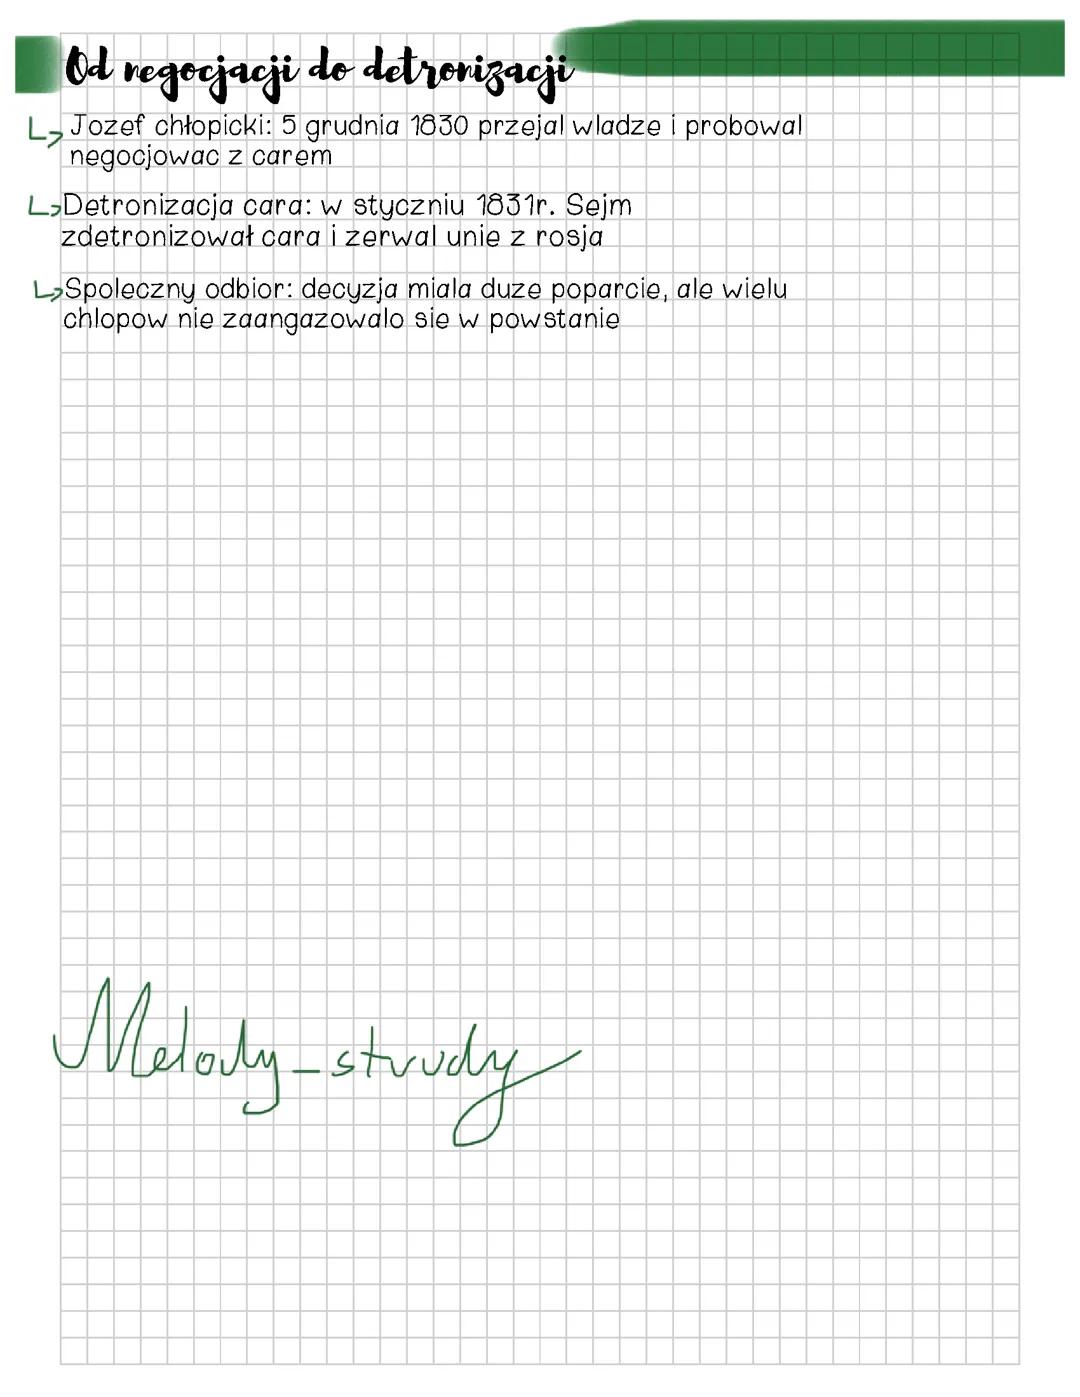 Od negocjacji do detronizacji
Jozef chłopicki: 5 grudnia 1830 przejal wladze i probowal
negocjowac z carem
Detronizacja cara: w styczniu 1831r. Sejm
zdetronizował cara i zerwal unie z rosja
Spoleczny odbior: decyzja miala duze poparcie, ale wielu
chlopow nie zaangazowalo sie w powstanie
Melody_study